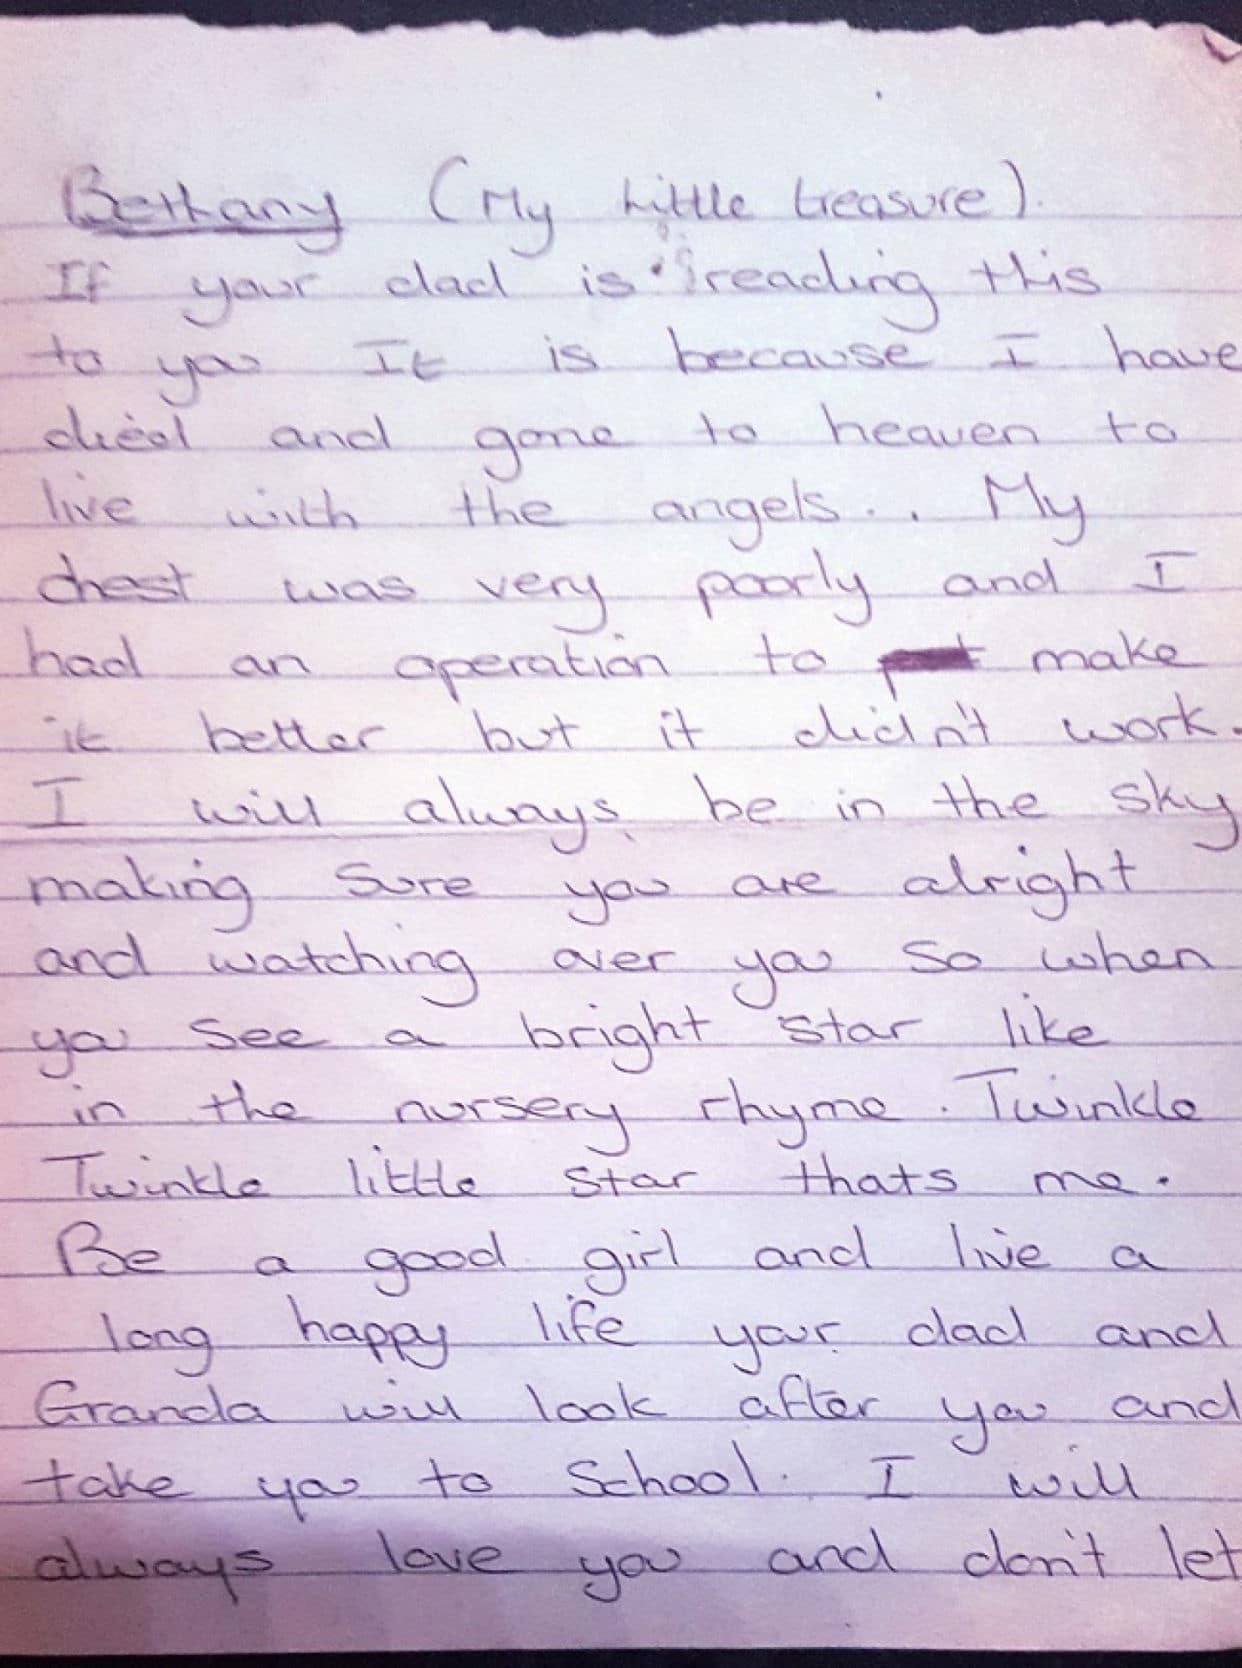 Bethany (My little treasure).
If your dad is reading this
to you It is because I have
died and gone to heaven to
live with the angels... My
chest was very poorly and I
had an operation to make
it better but it didn't work.
I will always be in the sky
making sure you are alright
and watching over you so when
you see a bright star like
in the nursery rhyme. Twinkle
Twinkle little star thats me.
Be a good girl and live a
long happy life your dad and
Granda will look after you and
take you to School. I will
always love you and don't let